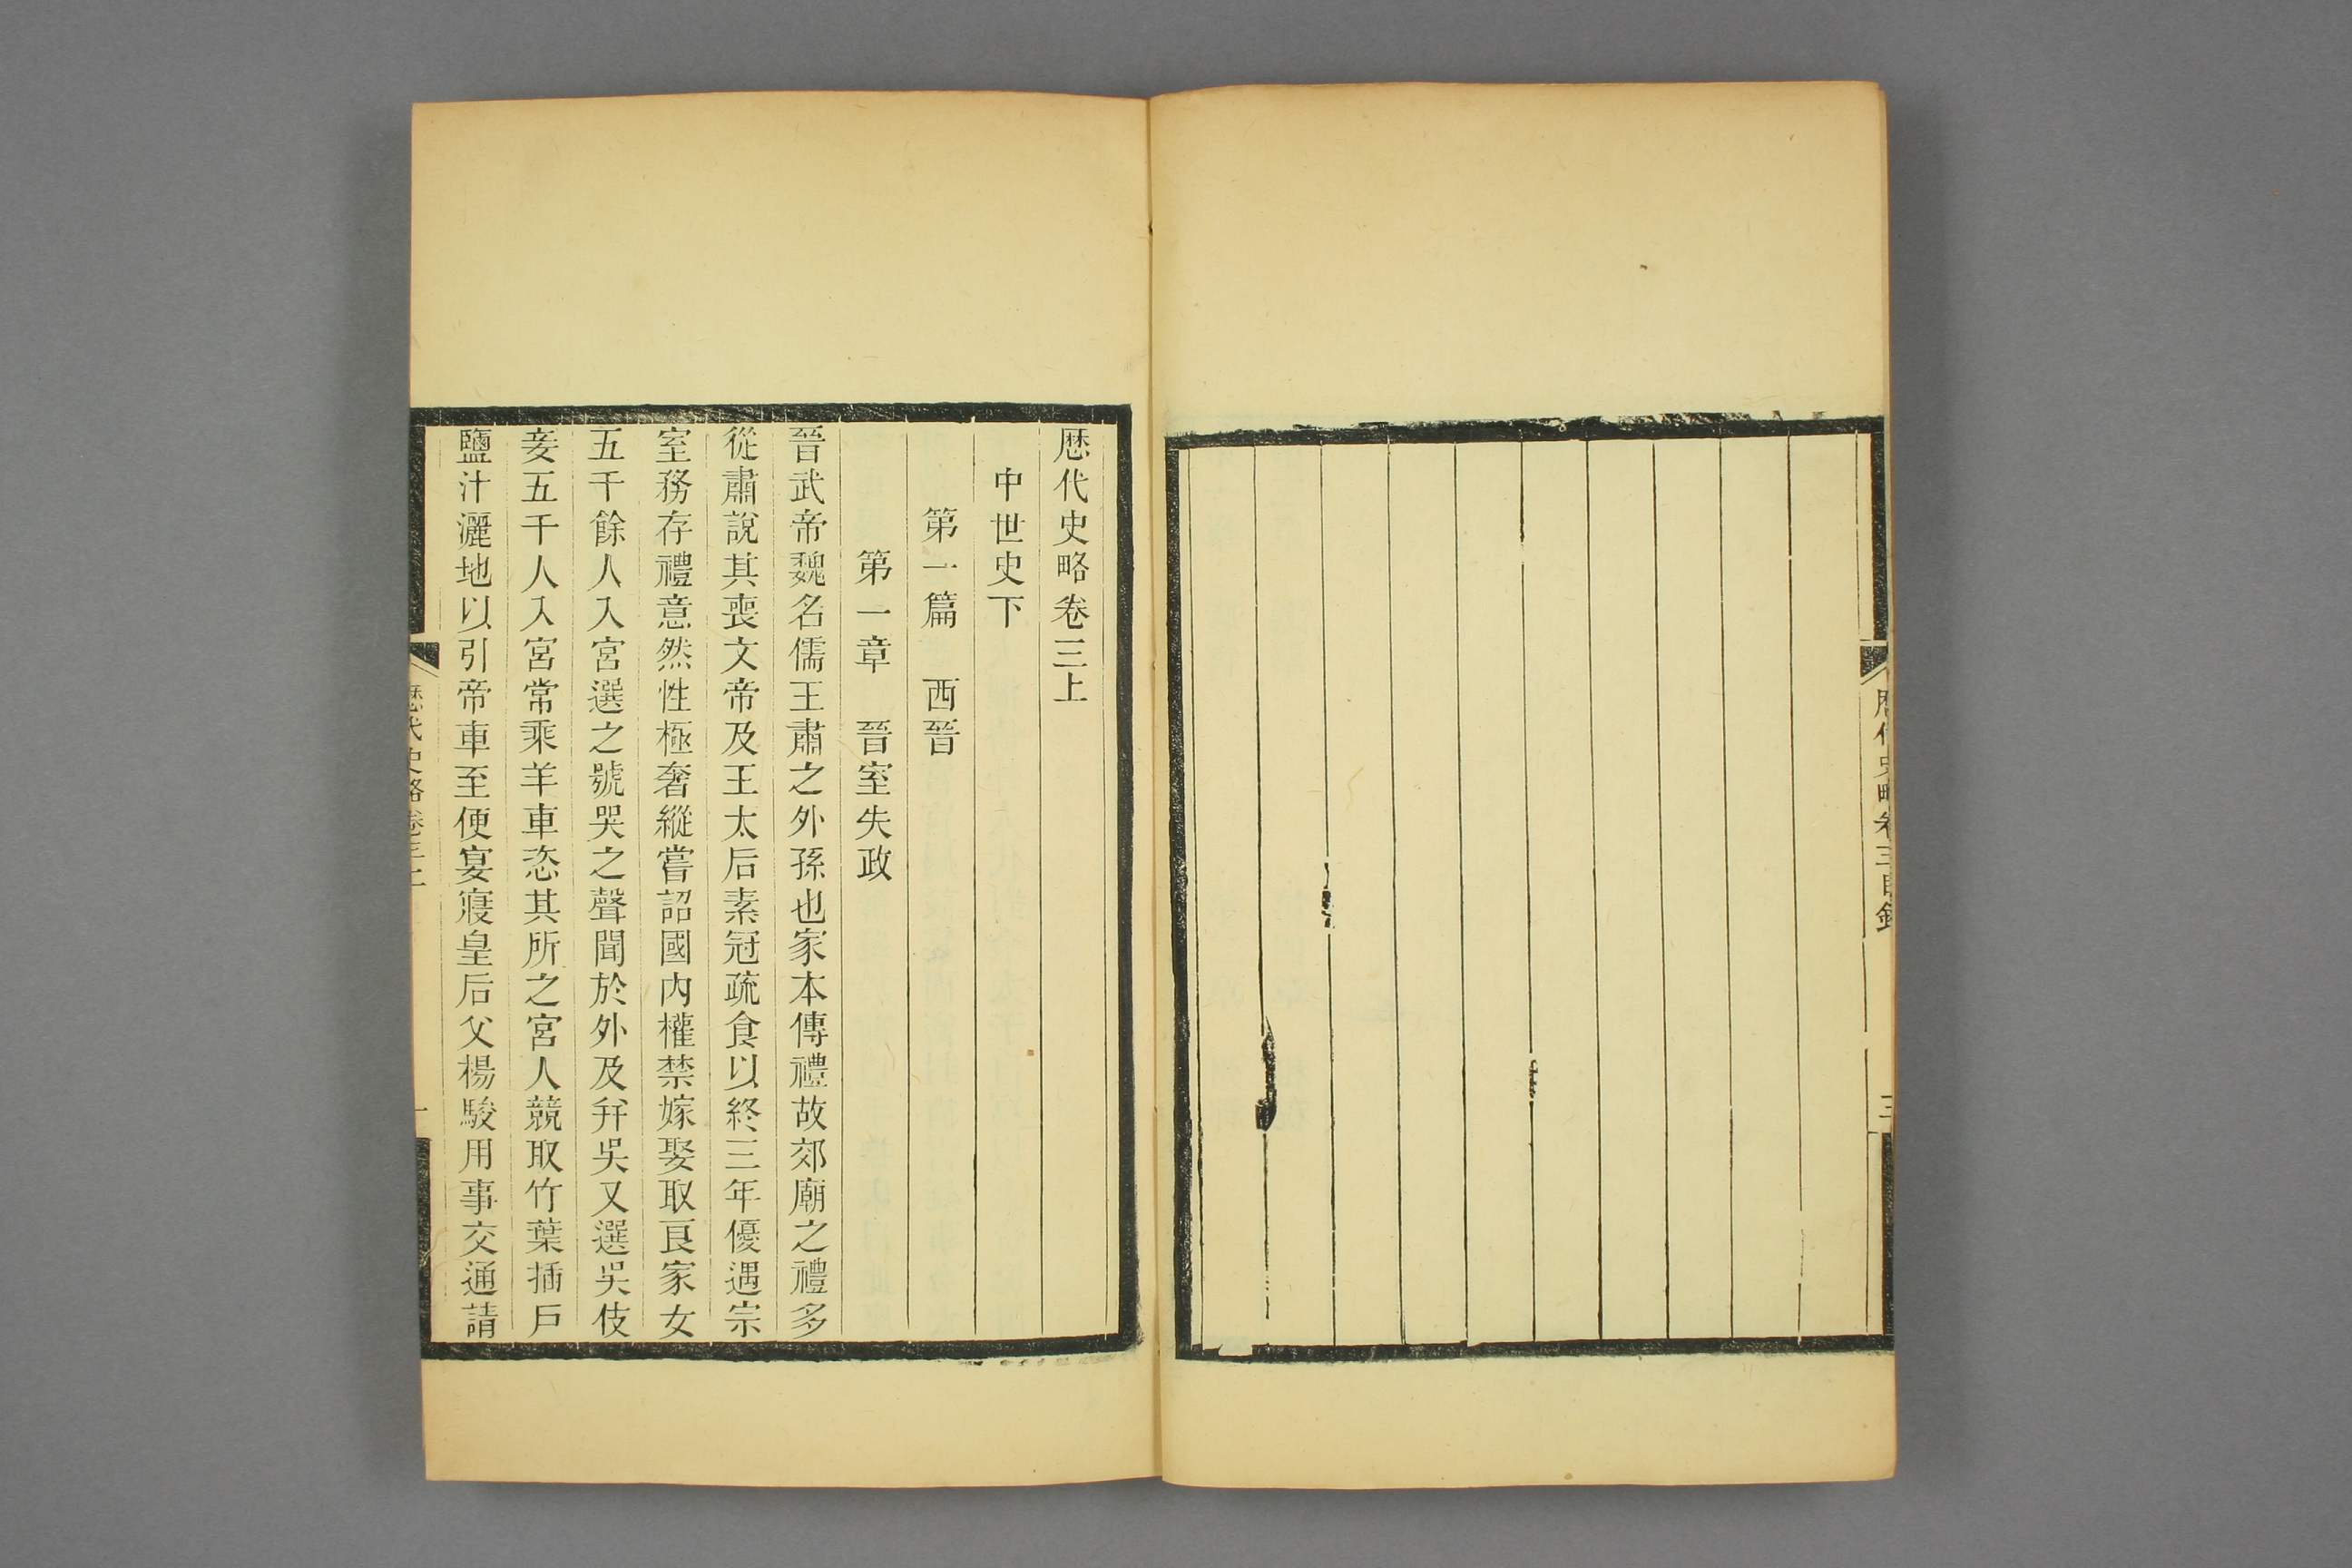 厯代史略卷三目錄
三
厯代史略卷三上
中世史下
第一篇　西晉
第一章　晉室失政
晉武帝魏名儒王肅之外孫也家本傳禮故郊廟之禮多
從肅說其喪文帝及王太后素冠疏食以終三年優遇宗
室務存禮意然性極奢縱嘗詔國內權禁嫁娶取良家女
五千餘人入宮選之號哭之聲聞於外及幷吳又選吳伎
妾五千人入宮常乘羊車恣其所之宮人競取竹葉插戶
鹽汁灑地以引帝車至便宴寢皇后父楊駿用事交通請
厯代史略卷三上
一